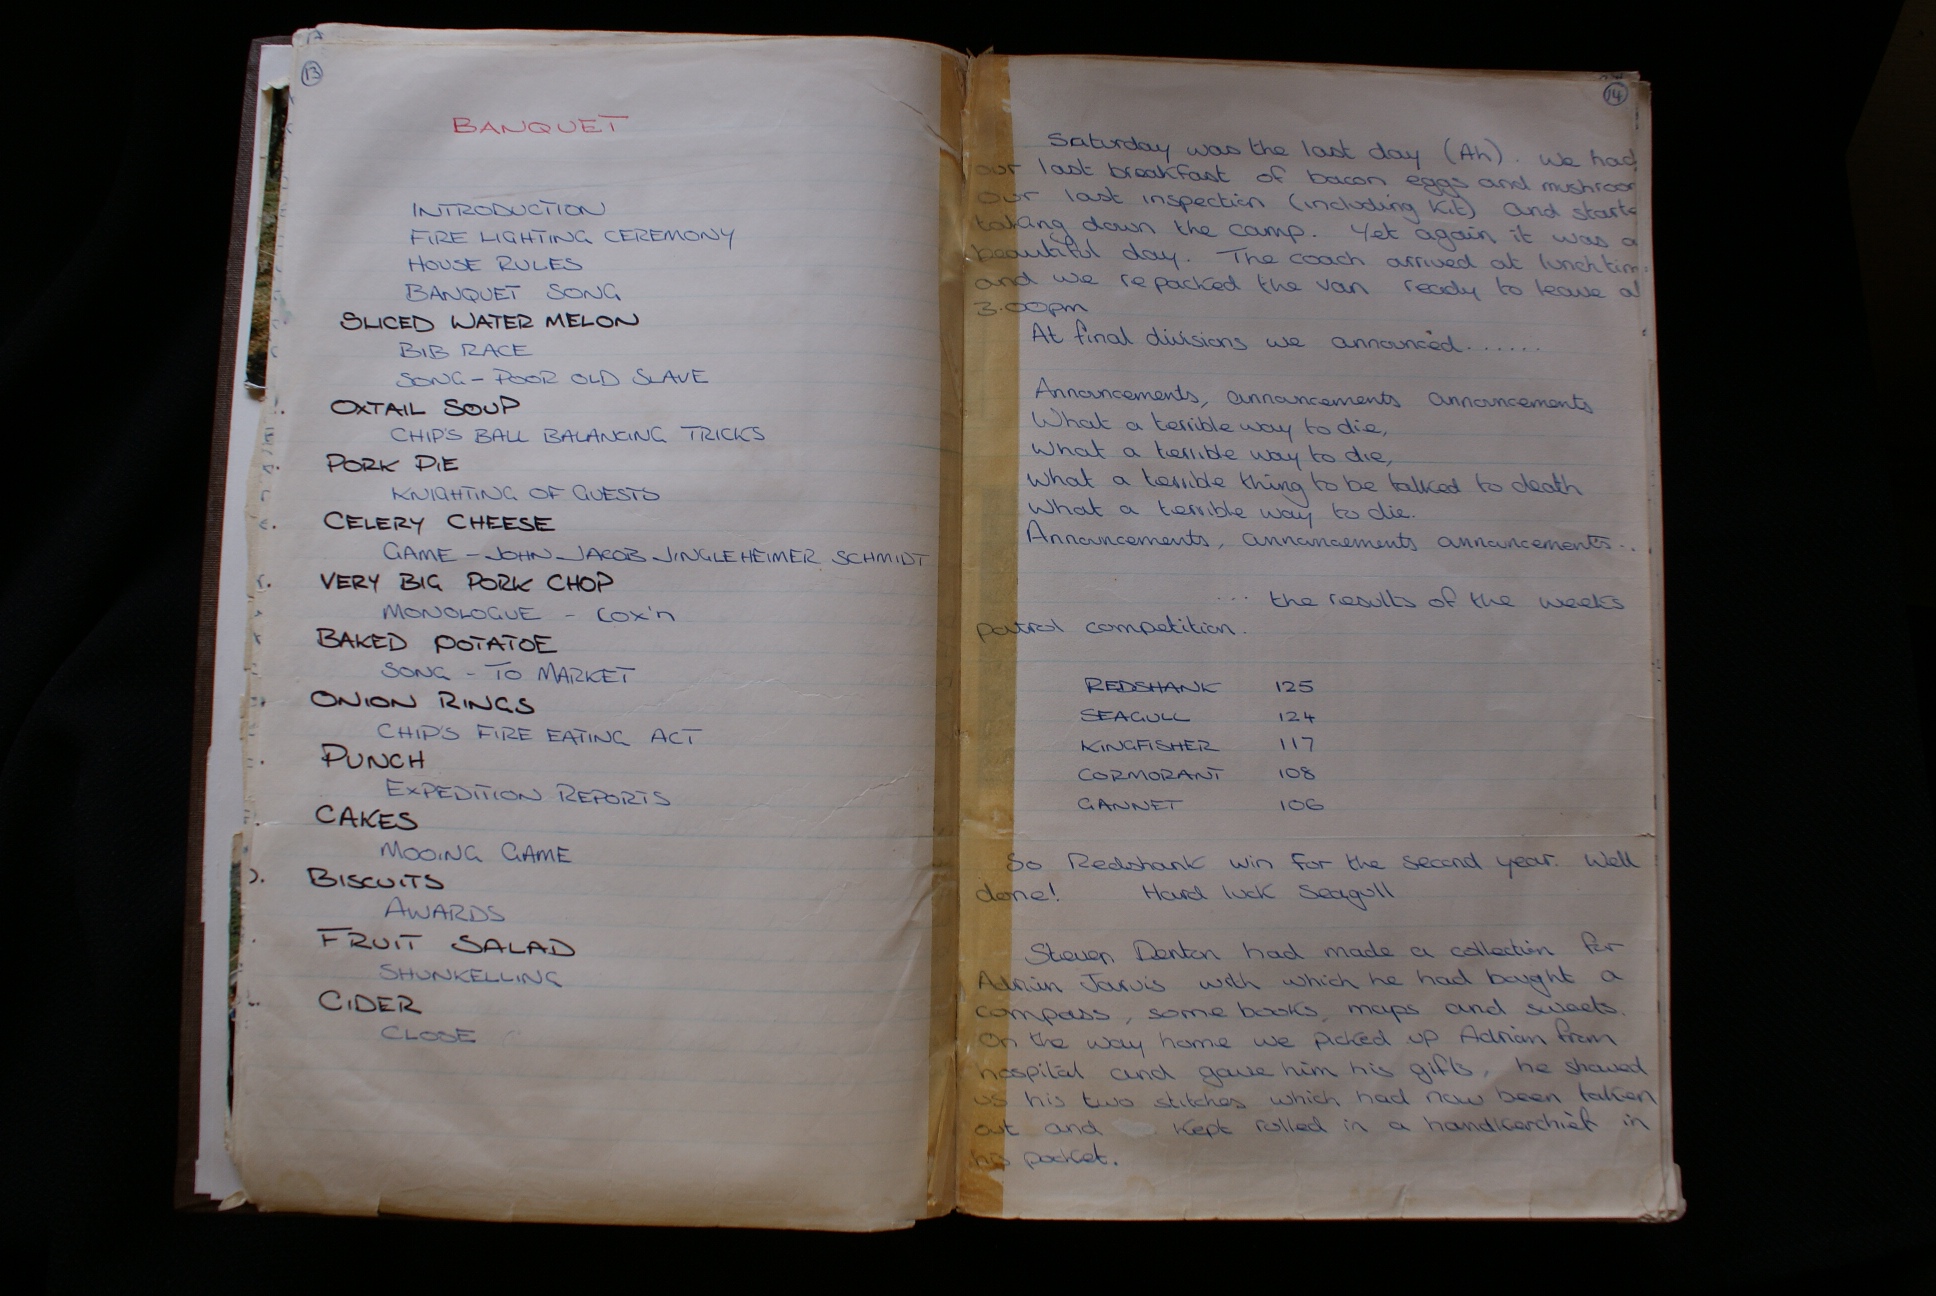 13
BANQUET
INTRODUCTION
FIRE LIGHTING CEREMONY
HOUSE RULES
BANQUET SONG
SLICED WATER MELON
BIB RACE
SONG - POOR OLD SLAVE
OXTAIL SOUP
CHIP'S BALL BALANCING TRICKS
PORK PIE
KNIGHTING OF GUESTS
CELERY CHEESE
GAME - JOHN JACOB JINGLEHEIMER SCHMIDT
VERY BIG PORK CHOP
MONOLOGUE - Cox'n
BAKED POTATOE
SONG - TO MARKET
ONION RINGS
CHIP'S FIRE EATING ACT
PUNCH
EXPEDITION REPORTS
CAKES
MOOING GAME
BISCUITS
AWARDS
FRUIT SALAD
SHUNKELLING
CIDER
CLOSE
14
Saturday was the last day (Ah). We had
our last breakfast of bacon eggs and mushroom
our last inspection (including Kit) and starte
taking down the camp. Yet again it was a
beautiful day. The coach arrived at lunchtim
and we repacked the van ready to leave at
3.00pm
At final divisions we announced.......
Annoucements, annoucements annoucements
What a terrible way to die,
What a terrible way to die,
What a terrible thing to be talked to death
What a terrible way to die.
Annoucements, annoucements annoucements...
... the results of the weeks
patrol competition.
REDSHANK 125
SEAGULL 124
KINGFISHER 117
CORMORANT 108
GANNET 106
So Redshank win for the second year. Well
done! Hard luck Seagull
Steven Denton had made a collection for
Adrian Jarvis with which he had bought a
compass, some books, maps and sweets.
On the way home we picked up Adrian from
hospital and gave him his gifts, he showed
us his two stitches which had now been taken
out and kept rolled in a handkerchief in
his pocket.